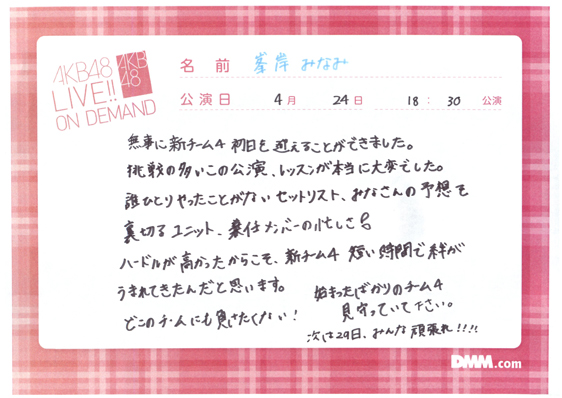 AKB48
LIVE!!
ON DEMAND
AKB
48
名 前 峯岸 みなみ
公演日 4月 24日 18:30 公演
無事に新チーム4 初日を迎えることができました。
挑戦の多いこの公演、レッスンが本当に大変でした。
誰ひとりやったことがないセットリスト、みなさんの予想を
裏切るユニット、兼任メンバーの忙しさ
ハードルが高かったからこそ、新チーム4 短い時間で絆が
うまれてきたんだと思います。
どこのチームにも負けたくない!
始まったばかりのチーム4
見守っていて下さい。
次は29日、みんな頑張れ!!!!
DMM.com